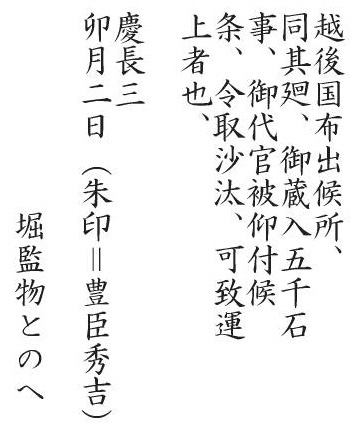 越後国布出候所、
同其廻、御蔵入五千石
事、御代官被仰付候
条、令取沙汰、可致運
上者也、
慶長三
卯月二日（朱印＝豊臣秀吉）
堀監物とのへ